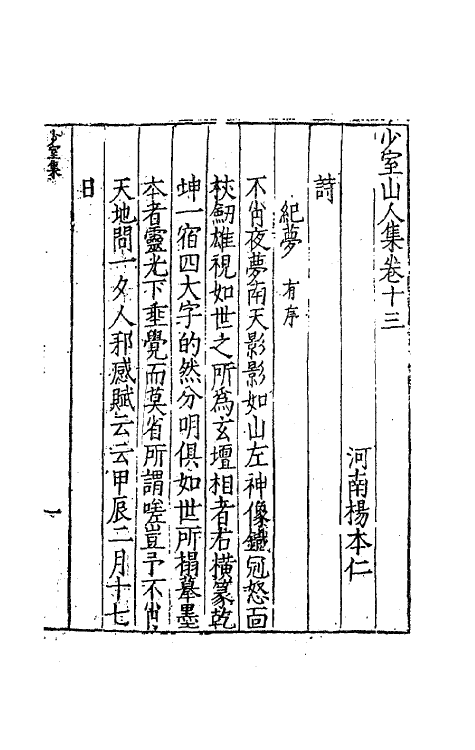 少室山人集卷十三
河南楊本仁
詩
紀夢 有序
不肖夜夢南天影影如山左神像鐵冠怒面
杖劒雄視如世之所為玄壇相者右橫篆乾
坤一宿四大字的然分明俱如世所榻摹墨
本者靈光下垂覺而莫省所謂嗟豈予不肖
天地問一夕人邪感賦云云甲辰二月十七
日
少室集
一